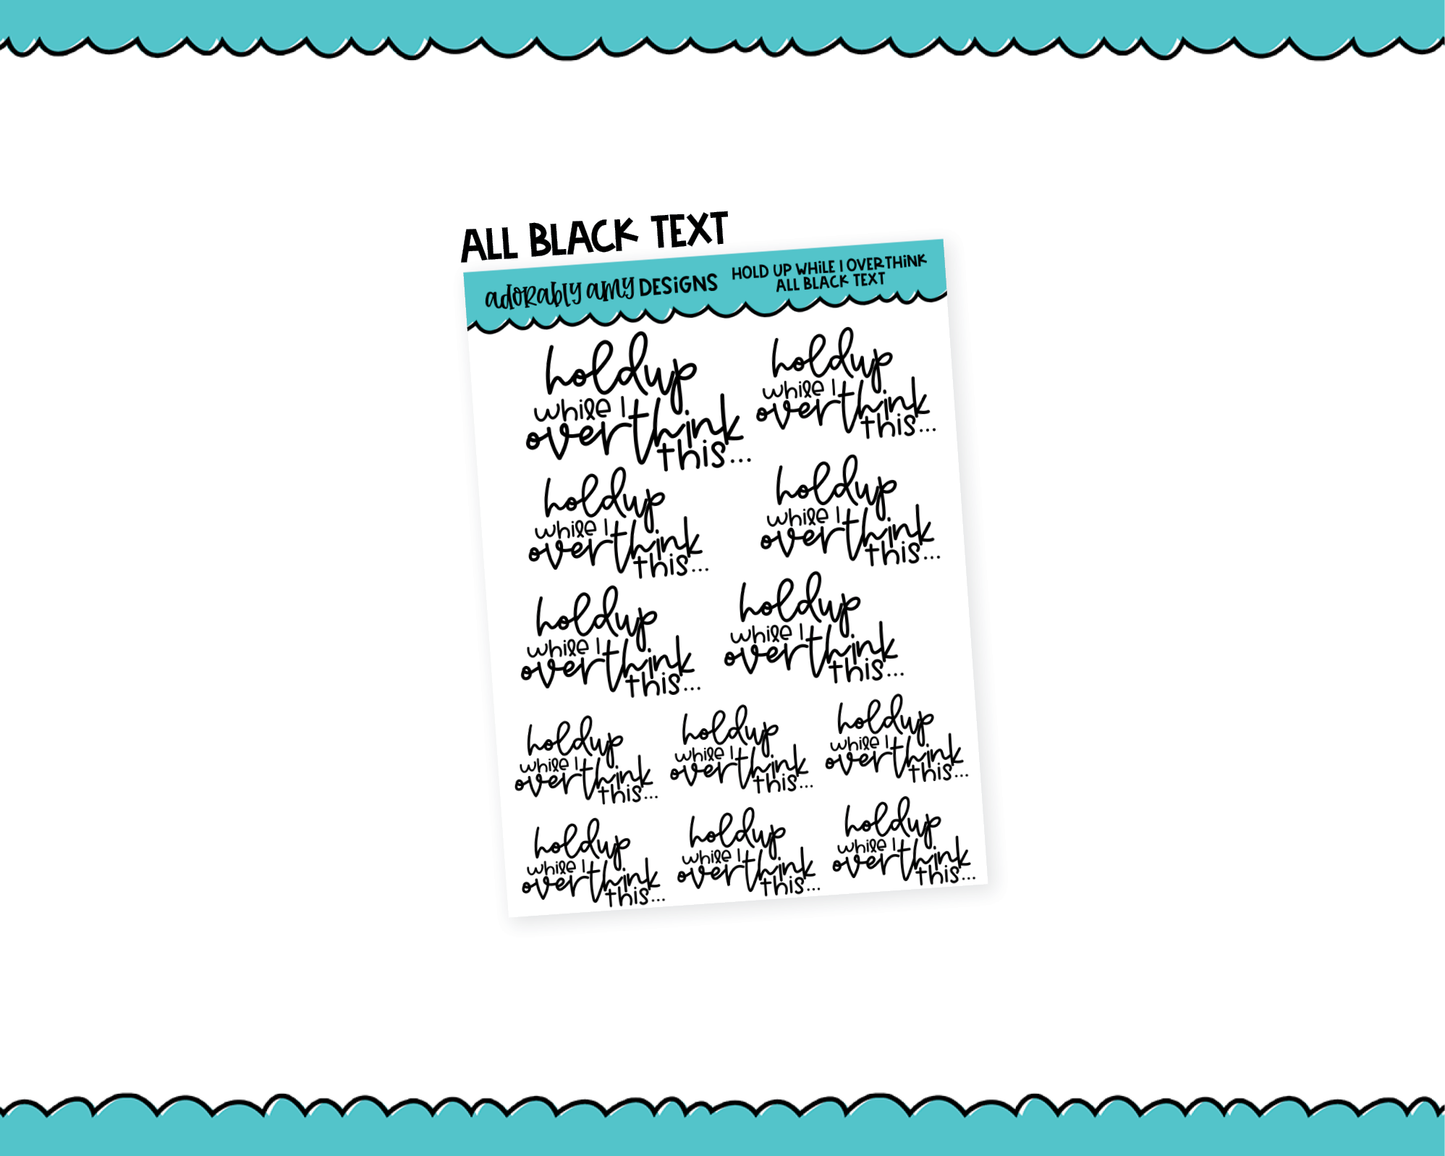 ALL BLACK TEXT
adorably amy DESiGNS
HOLD UP WHiLE I OVERTHiNK
ALL BLACK TEXT
hold up
while I
overthink
this...
hold up
while I
overthink
this...
hold up
while I
overthink
this...
hold up
while I
overthink
this...
hold up
while I
overthink
this...
hold up
while I
overthink
this...
hold up
while I
overthink
this...
hold up
while I
overthink
this...
hold up
while I
overthink
this...
hold up
while I
overthink
this...
hold up
while I
overthink
this...
hold up
while I
overthink
this...